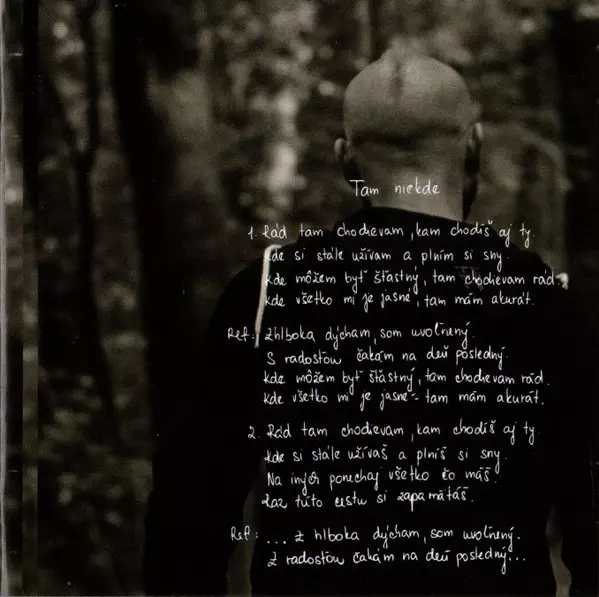 Tam niekde
1. Rád tam chodievam, kam chodíš aj ty.
kde si stále užívam a plním si sny.
kde môžem byť šťastný, tam chodievam rád.
kde všetko mi je jasné, tam mám akurát.
Ref: Zhlboka dýcham, som uvoľnený.
S radosťou čakám na deň posledný.
kde môžem byť šťastný, tam chodievam rád.
kde všetko mi je jasné - tam mám akurát.
2. Rád tam chodievam, kam chodíš aj ty.
kde si stále užívaš a plníš si sny.
Na iných ponechaj všetko čo máš.
Raz túto cestu si zapamätáš.
Ref: ... z hlboka dýcham, som uvoľnený.
Z radosťou čakám na deň posledný...